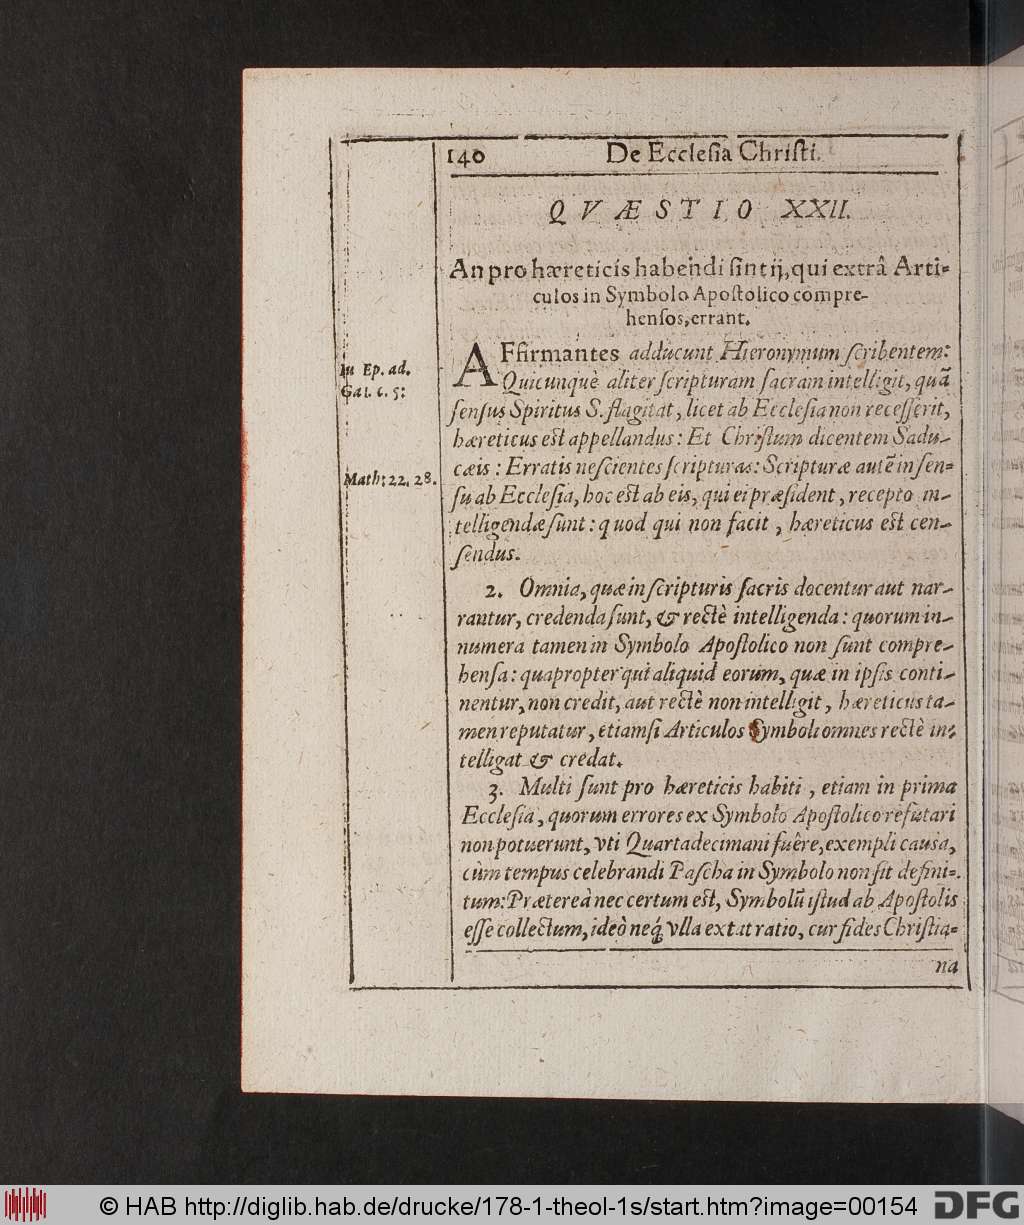 140 De Eccleſia Chriſti.
Q V Æ S T I O XXII.
An pro hæreticis habendi ſint ij, qui extrâ Arti-
culos in Symbolo Apoſtolico compre-
henſos, errant.
AFfirmantes adducunt Hieronymum ſcribentem:
In Ep. ad.
Quicunquè aliter ſcripturam ſacram intelligit, quā
Gal. c. 5:
ſenſus Spiritus S. flagitat, licet ab Eccleſia non receſſerit,
hæreticus eſt appellandus: Et Chriſtum dicentem Sadu-
cæis: Erratis neſcientes ſcripturas: Scripturæ autē in ſen-
Math: 22. 28.
ſu ab Eccleſia, hoc eſt ab eis, qui ei præſident, recepto in-
telligendæ ſunt: quod qui non facit, hæreticus eſt cen-
ſendus.
2. Omnia, quæ in ſcripturis ſacris docentur aut nar-
rantur, credenda ſunt, & rectè intelligenda: quorum in-
numera tamen in Symbolo Apoſtolico non ſunt compre-
henſa: quapropter qui aliquid eorum, quæ in ipſis conti-
nentur, non credit, aut rectè non intelligit, hæreticus ta-
men reputatur, etiamſi Articulos Symboli omnes rectè in-
telligat & credat.
3. Multi ſunt pro hæreticis habiti, etiam in prima
Eccleſia, quorum errores ex Symbolo Apoſtolico refutari
non potuerunt, vti Quartadecimani fuêre, exempli cauſa,
cùm tempus celebrandi Paſcha in Symbolo non ſit defini-
tum: Præterea nec certum eſt, Symbolū iſtud ab Apoſtolis
eſſe collectum, ideò neq́ vlla extat ratio, cur fides Chriſtia-
na
© HAB http://diglib.hab.de/drucke/178-1-theol-1s/start.htm?image=00154
DFG